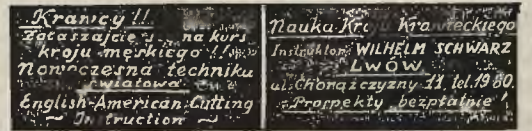 Krawcy!!
Zgłaszajcie na kurs
kroju męskiego!!
Nowoczesna techniku
światowa
English-American Cutting
Instruction
Nauka Kroju Krawieckiego
Instruktor: WILHELM SCHWARZ
LWÓW
ul. Chorążczyzny 11, tel. 19 80
Prospekty bezpłatnie!